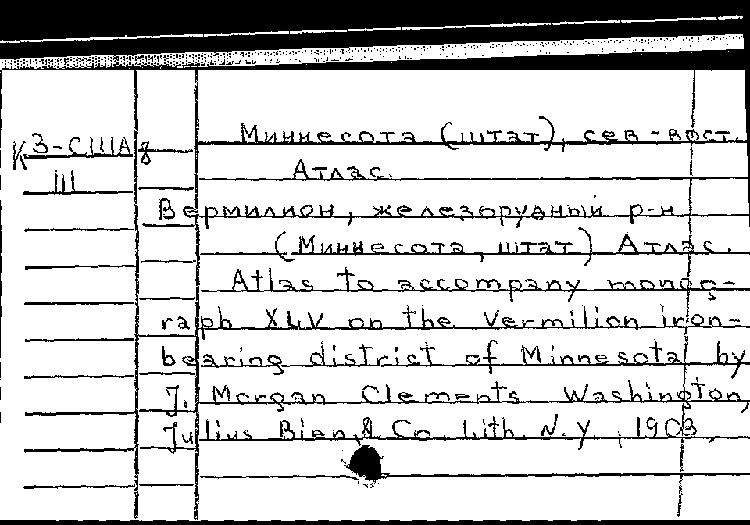 Миннесота (штат), сев-вост.
К 3-США 8
III
Атлас.
Вермилион, железорудный р-н
(Миннесота, штат) Атлас.
Atlas to accompany monog-
raph XLV on the Vermilion iron-
bearing district of Minnesota by
J. Morgan Clements Washington,
Julius Bien & Co. Lith. N.Y., 1903.